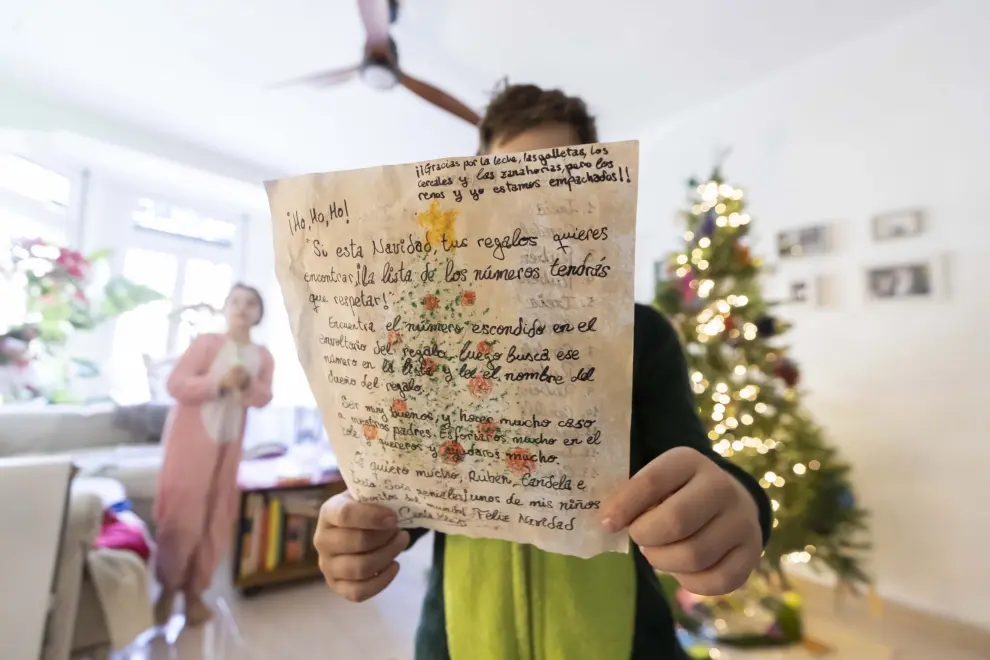 ¡¡Gracias por la leche, las galletas, los
cereales y las zanahorias, pero los
renos y yo estamos empachados!!
¡Ho, Ho, Ho!
Si esta Navidad tus regalos quieres
encontrar, ¡la lista de los números tendrás
que respetar!
Encuentra el número escondido en el
envoltorio del regalo, luego busca ese
número en la lista y lee el nombre del
dueño del regalo.
Ser muy buenos, y hacer mucho caso
a nuestros padres. Esforzaros mucho en el
cole y quereros y ayudaros mucho.
Os quiero mucho, Rubén, Candela e
Sois genial unos de mis niños
del mundo. Feliz Navidad